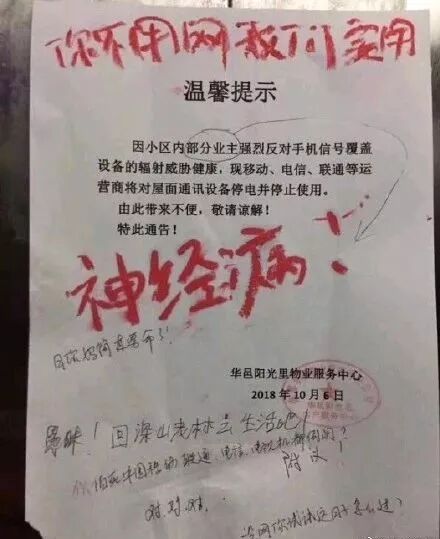 你不用网我们要用
温馨提示
因小区内部分业主强烈反对手机信号覆盖
设备的辐射威胁健康，现移动、电信、联通等运
营商将对屋面通讯设备停电并停止使用。
由此带来不便，敬请谅解！
特此通告！
神经病！
华邑阳光里物业服务中心
2018年10月6日
愚昧！回深山老林去生活吧！
附议！
对.对.对.